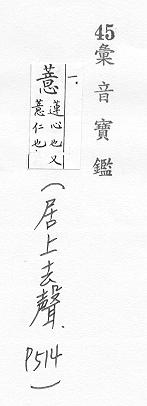 45彙音寶鑑
一.
薏 蓮心也又
薏仁也.
(居上去聲.
P514)